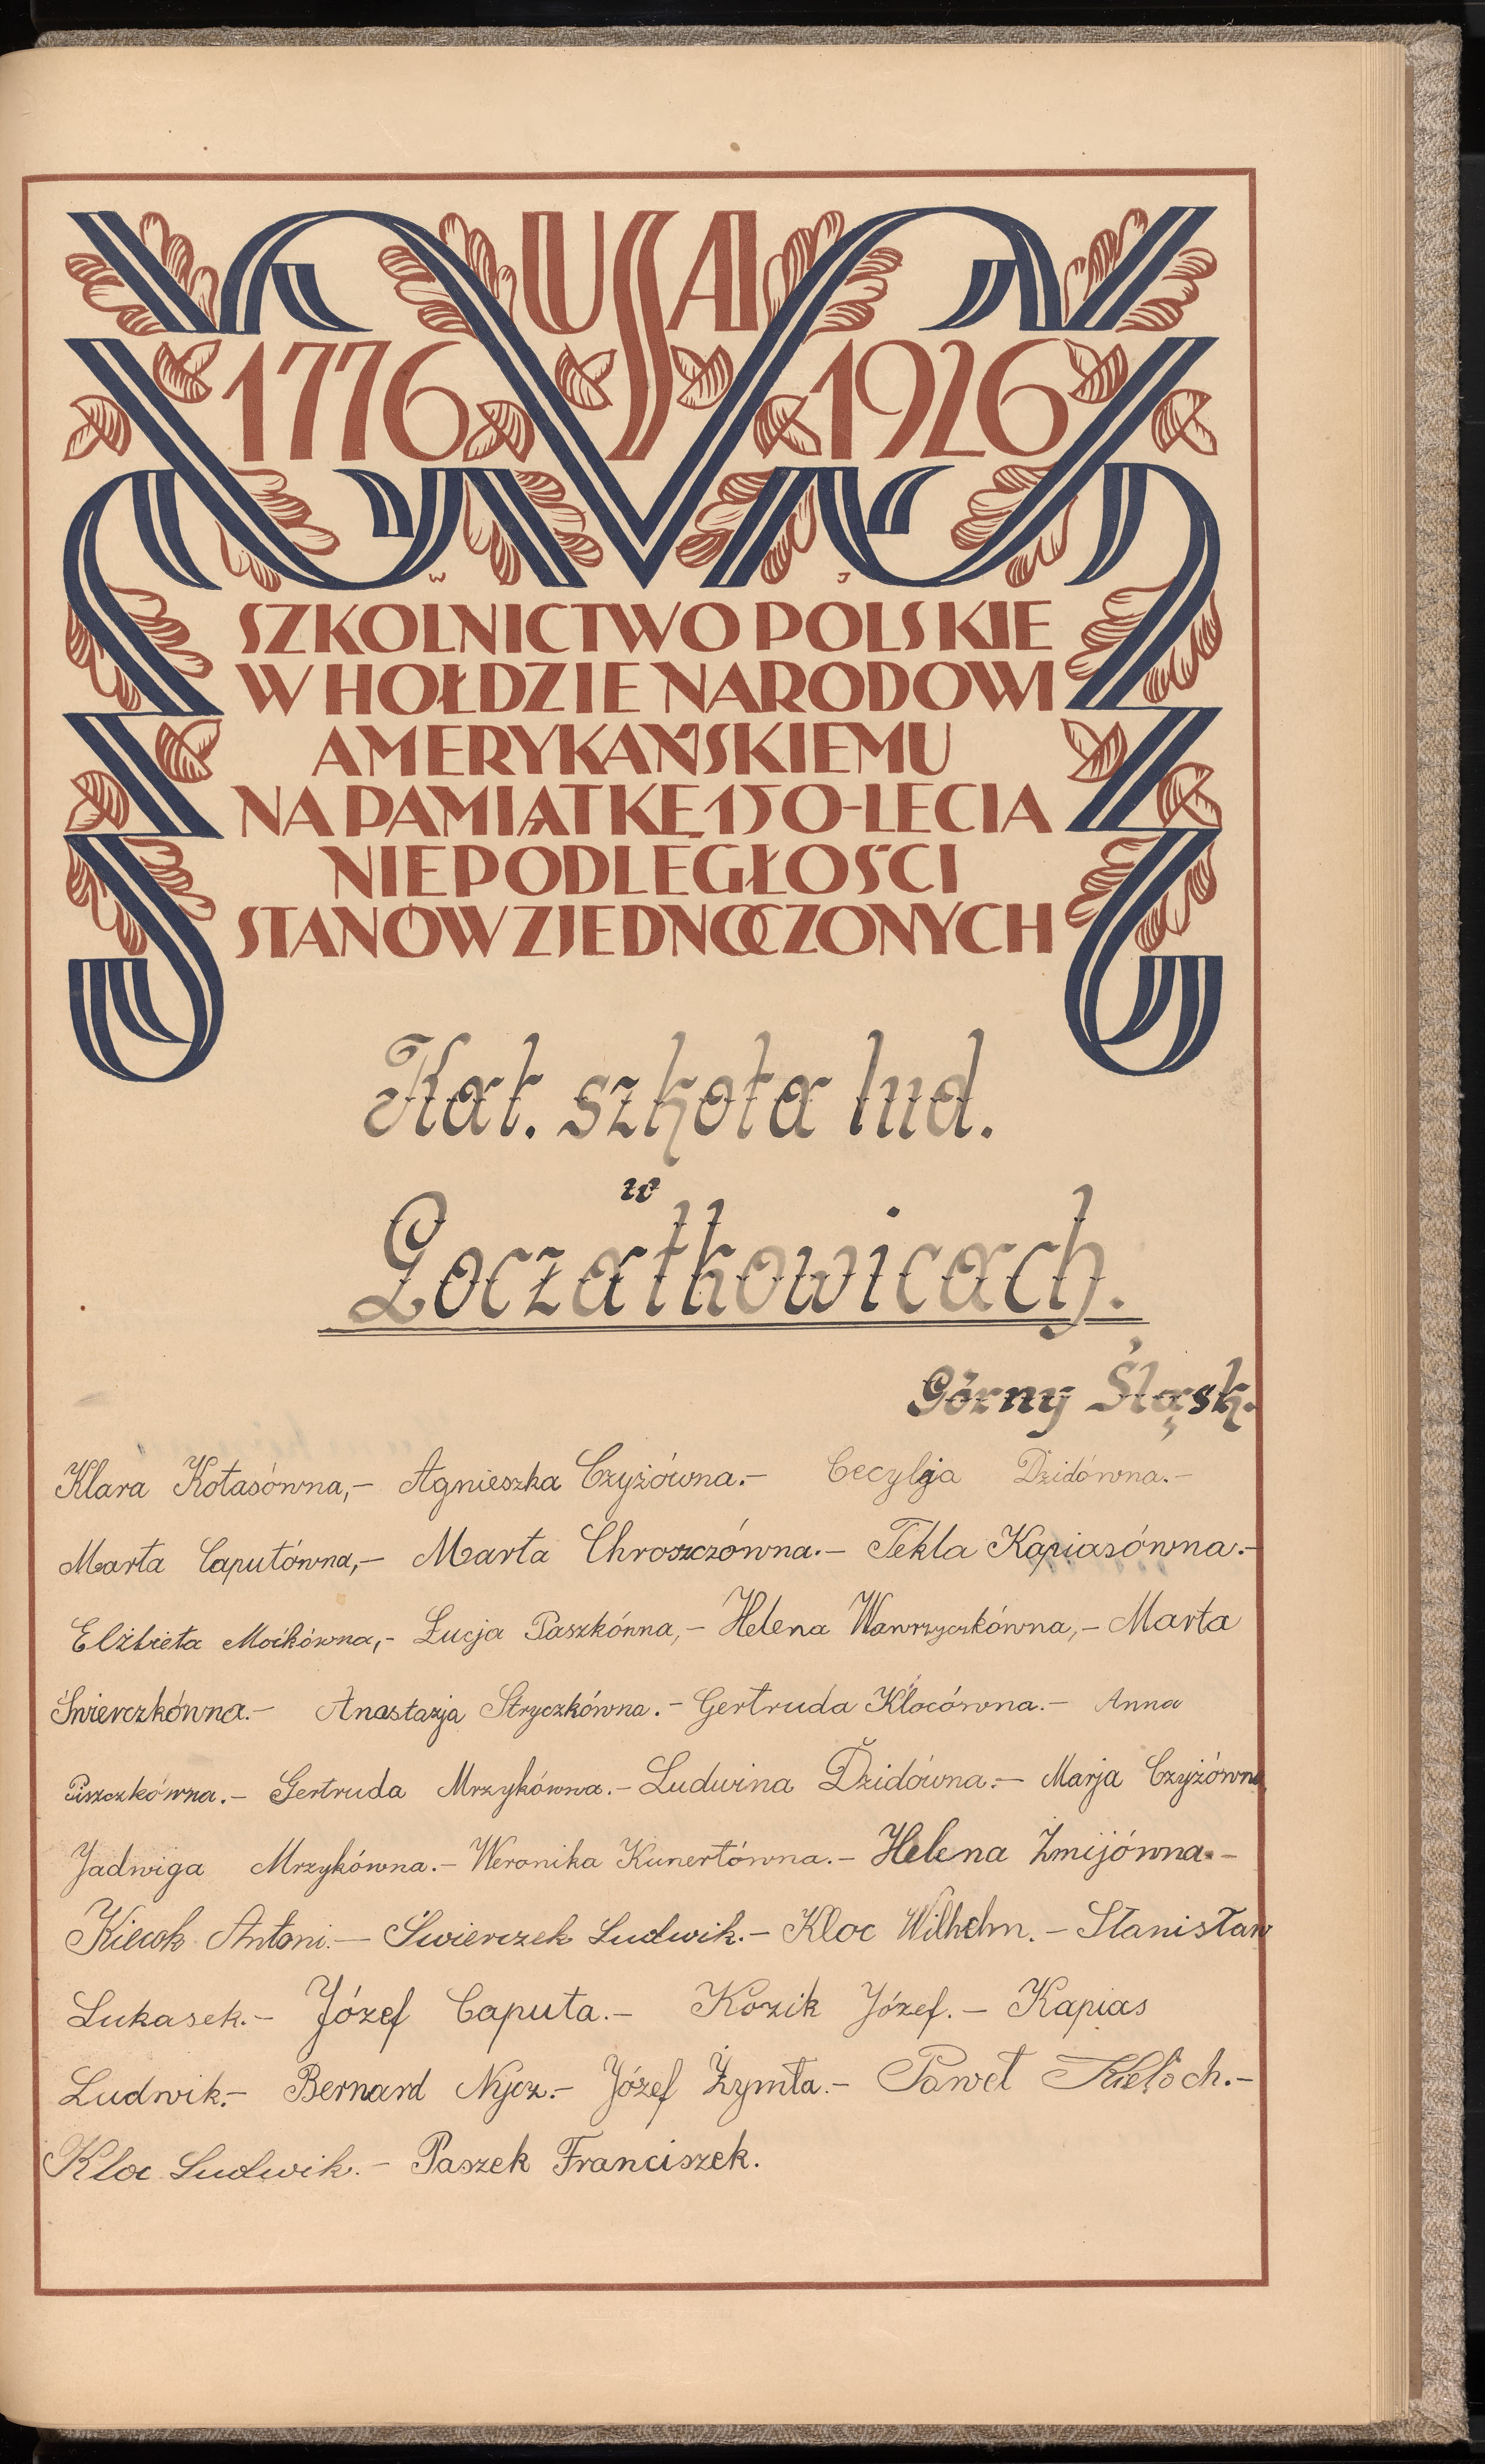 USA
1776 1926
W J
SZKOLNICTWO POLSKIE
W HOŁDZIE NARODOWI
AMERYKAŃSKIEMU
NA PAMIĄTKĘ 150-LECIA
NIEPODLEGŁOŚCI
STANÓW ZJEDNOCZONYCH
Kat. szkoła lud.
w
Goczałkowicach.
Górny Śląsk.
Klara Kotasówna,- Agnieszka Czyżówna.- Cecylja Dzidówna.-
Marta Caputówna,- Marta Chroszczówna.- Tekla Kapiasówna.-
Elżbieta Moikówna,- Łucja Paszkówna,- Helena Wawrzyczkówna,- Marta
Świerczkówna.- Anastazja Stryczkówna.- Gertruda Klocówna.- Anna
Piszczkówna.- Gertruda Mrzykówna.- Ludwina Dzidówna.- Marja Czyżówna
Jadwiga Mrzykówna.- Weronika Kunertówna.- Helena Żmijówna.-
Antoni.- Świerczek Ludwik.- Kloc Wilhelm.- Stanisław
Lukasek.- Józef Caputa.- Kozik Józef.- Kapias
Ludwik.- Bernard Nycz.- Józef Żymła.- Paweł Kieloch.-
Kloc Ludwik.- Paszek Franciszek.